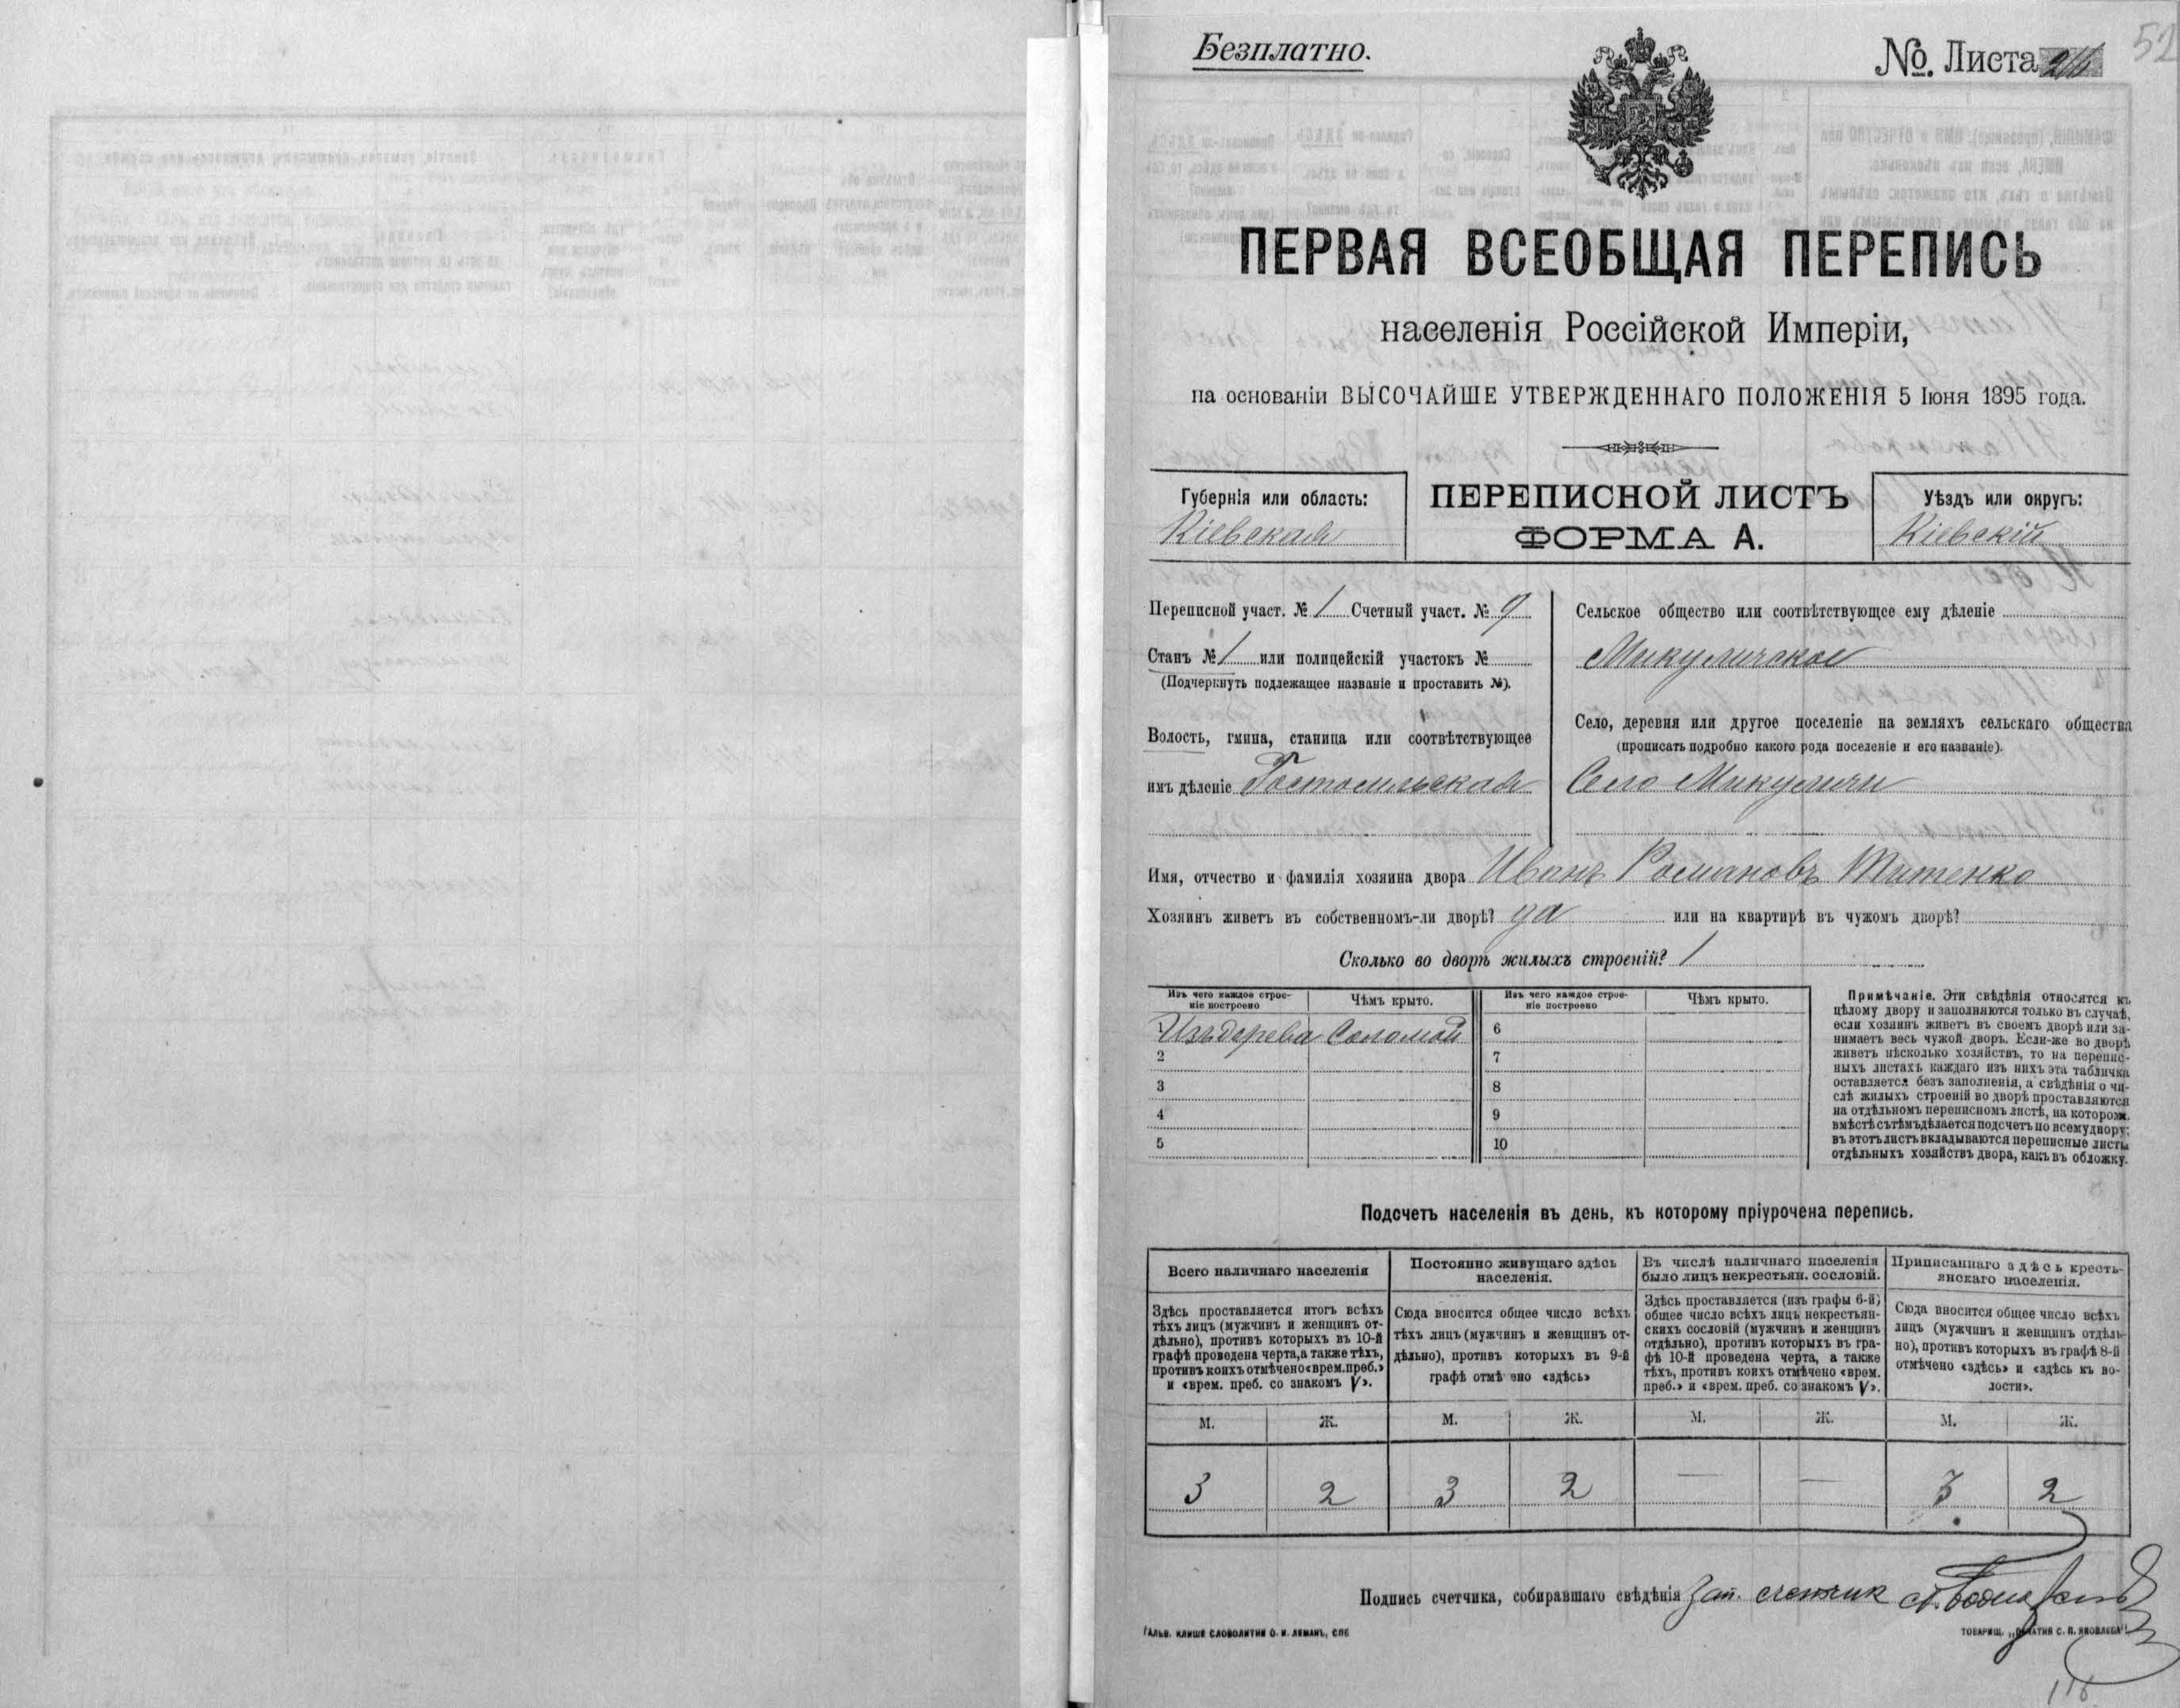 Безплатно.
№. Листа
52
ПЕРВАЯ ВСЕОБЩАЯ ПЕРЕПИСЬ
населенія Россійской Имперіи,
на основаніи ВЫСОЧАЙШЕ УТВЕРЖДЕННАГО ПОЛОЖЕНІЯ 5 Іюня 1895 года.
Губернія или область:
Кіевская
ПЕРЕПИСНОЙ ЛИСТЪ
ФОРМА А.
Уѣздъ или округъ:
Кіевскій
Переписной участ. № 1 Счетный участ. № 9
Станъ № 1 или полицейскій участокъ №
(Подчеркнуть подлежащее названіе и проставить №).
Волость, гмина, станица или соотвѣтствующее
имъ дѣленіе Гостомельская
Сельское общество или соотвѣтствующее ему дѣленіе
Микуличское
Село, деревня или другое поселеніе на земляхъ сельскаго общества
(прописать подробно какого рода поселеніе и его названіе).
Село Микуличи
Имя, отчество и фамилія хозяина двора Иванъ Романовъ Титенко
Хозяинъ живетъ въ собственномъ-ли дворѣ? да или на квартирѣ въ чужомъ дворѣ?
Сколько во дворѣ жилыхъ строеній? 1
Изъ чего каждое строе-
ніе построено
Чѣмъ крыто.
Изъ чего каждое строе-
ніе построено
Чѣмъ крыто.
1 Изъ дерева Соломой 6
2 7
3 8
4 9
5 10
Примѣчаніе. Эти свѣдѣнія относятся къ
цѣлому двору и заполняются только въ случаѣ,
если хозяинъ живетъ въ своемъ дворѣ или за-
нимаетъ весь чужой дворъ. Если-же во дворѣ
живетъ нѣсколько хозяйствъ, то на перепис-
ныхъ листахъ каждаго изъ нихъ эта табличка
оставляется безъ заполненія, а свѣдѣнія о чи-
слѣ жилыхъ строеній во дворѣ проставляются
на отдѣльномъ переписномъ листѣ, на которомъ
вмѣстѣ съ тѣмъ дѣлается подсчетъ по всему двору;
въ этотъ листъ вкладываются переписные листы
отдѣльныхъ хозяйствъ двора, какъ въ обложку.
Подсчетъ населенія въ день, къ которому пріурочена перепись.
Всего наличнаго населенія
Здѣсь проставляется итогъ всѣхъ
тѣхъ лицъ (мужчинъ и женщинъ от-
дѣльно), противъ которыхъ въ 10-й
графѣ проведена черта, а также тѣхъ,
противъ коихъ отмѣчено «врем. преб.»
и «врем. преб. со знакомъ V».
Постоянно живущаго здѣсь
населенія.
Сюда вносится общее число всѣхъ
тѣхъ лицъ (мужчинъ и женщинъ от-
дѣльно), противъ которыхъ въ 9-й
графѣ отмѣчено «здѣсь»
Въ числѣ наличнаго населенія
было лицъ некрестьян. сословій.
Здѣсь проставляется (изъ графы 6-й)
общее число всѣхъ лицъ некрестьян-
скихъ сословій (мужчинъ и женщинъ
отдѣльно), противъ которыхъ въ гра-
фѣ 10-й проведена черта, а также
тѣхъ, противъ коихъ отмѣчено «врем.
преб.» и «врем. преб. со знакомъ V».
Приписаннаго здѣсь кресть-
янскаго населенія.
Сюда вносится общее число всѣхъ
лицъ (мужчинъ и женщинъ отдѣль-
но), противъ которыхъ въ графѣ 8-й
отмѣчено «здѣсь» и «здѣсь къ во-
лости».
М. Ж. М. Ж. М. Ж. М. Ж.
3 2 3 2 — — 3 2
Подпись счетчика, собиравшаго свѣдѣнія Зап. счетчик
ГАЛЬВ. КЛИШЕ СЛОВОЛИТНИ О. И. ЛЕМАНЪ, СПБ
ТОВАРИЩ. „ПЕЧАТНЯ С. П. ЯКОВЛЕВА"